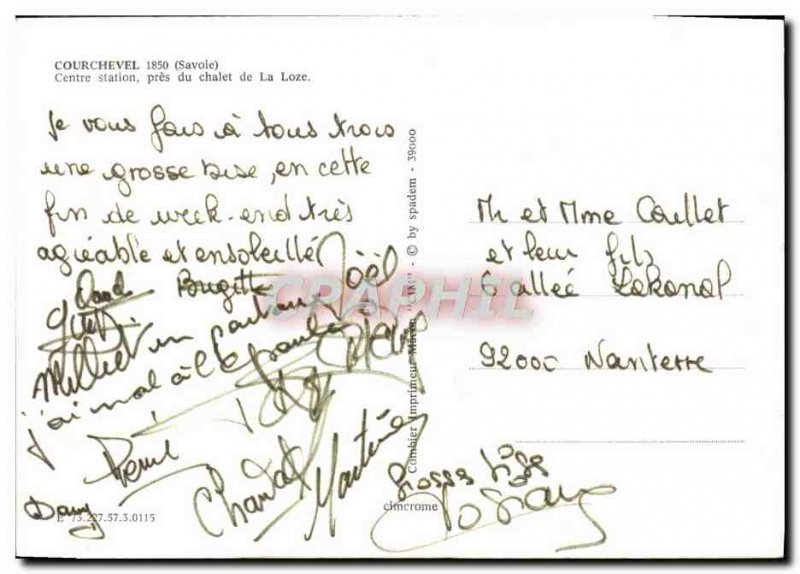 COURCHEVEL 1850 (Savoie)
Centre station, près du chalet de La Loze.
Je vous fais à tous trois
une grosse bise, en cette
fin de week-end très
agréable et ensoleillé
Brigitte Joël
j'ai mal à l'épaule
Chantal
Martine
Dany
Grosses bises
Josiane
E 73.227.57.3.0115
Combier Imprimeur Mâcon "CIM" - © by spadem - 39000
cimcrome
Mr et Mme Coullet
et leur fils
6 allée Lakanal
92000 Nanterre
CPAPHIL